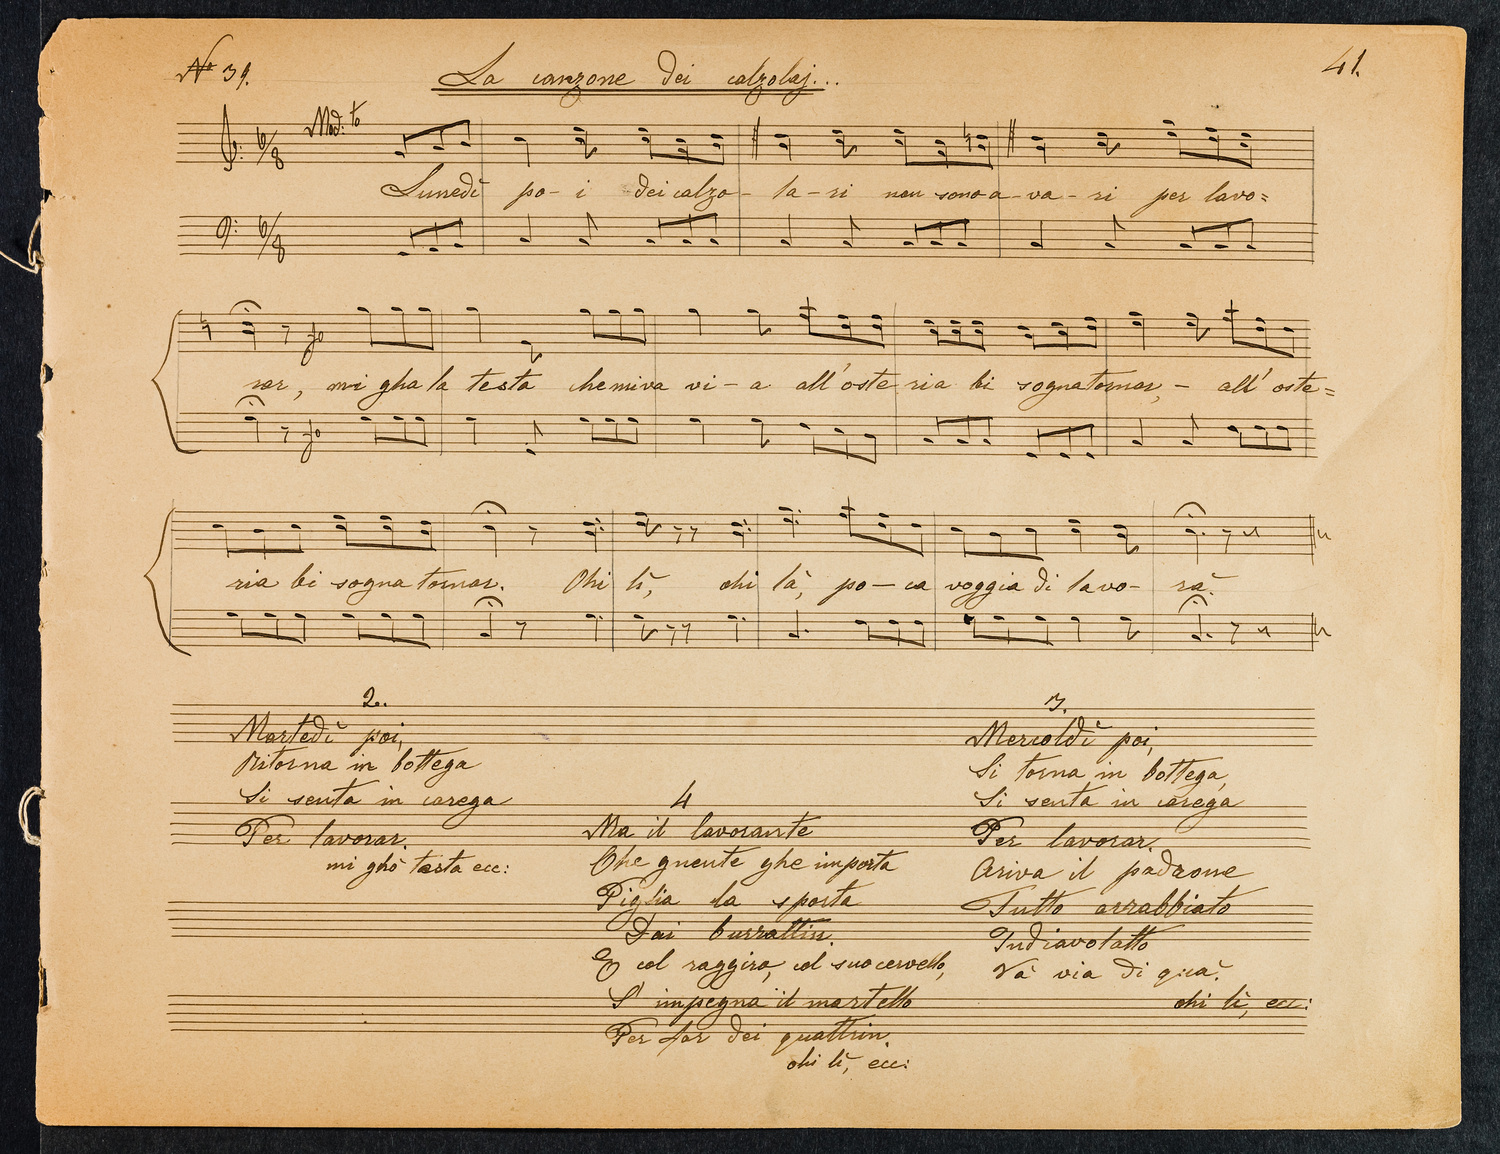 No 39.
La canzone dei calzolaj...
41.
Mod:to
6/8
Lunedì po-i dei calzo-la-ri non sono a-va-ri per lavo=
6/8
rar, mi gha la testa che mi va vi-a all'oste ria bi sogna tornar,- all' oste=
ria bi sogna tornar. Ohi lì, ohi là, po-ca voggia di lavo-rà.
2.
Martedì poi,
Ritorna in bottega
Si senta in carega
Per lavorar.
mi ghò testa ecc:
4
Ma il lavorante
Che gnente ghe importa
Piglia la sporta
Dai burrattin.
E col raggiro, col suo cervello,
S'impegna il martello
Per far dei quattrin.
ohi lì, ecc:
3.
Mercoldì poi,
Si torna in bottega,
Si senta in carega
Per lavorar.
Ariva il padrone
Tutto arrabbiato
Indiavolatto
Và via di quà.
ohi lì, ecc: